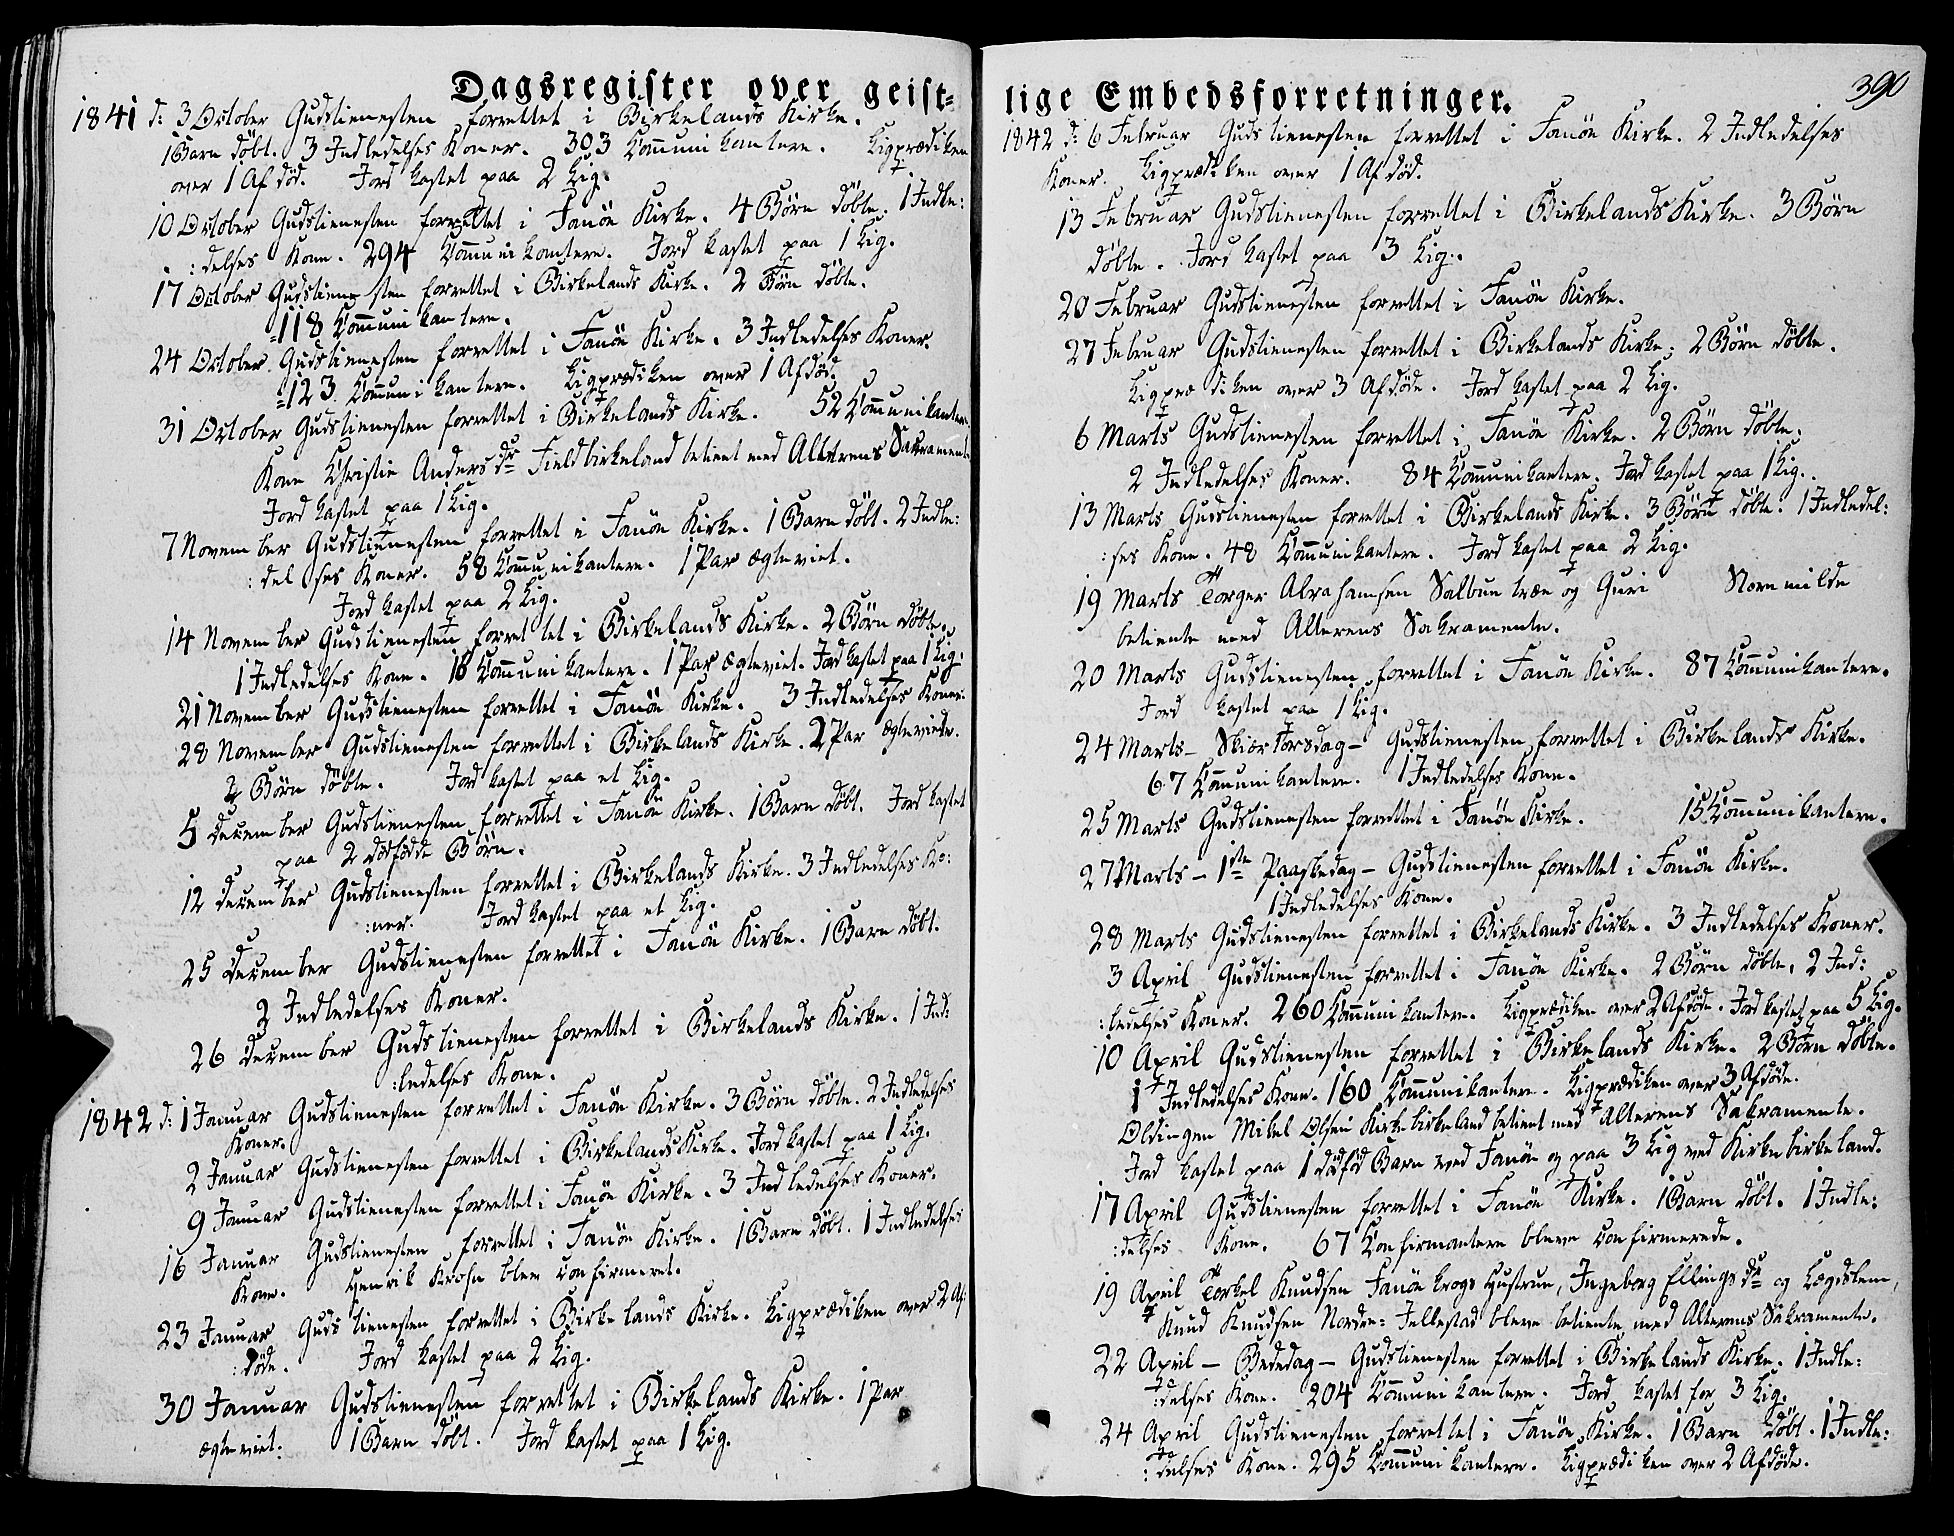 Dagsregister over geist-
1841 d: 3 October Gudstienesten forrettet i Birkelands Kirke.
1 Barn døbt. 3 Indledelses Koner. 303 Com̄unikantere. Ligprædiken
over 1 Afdød. Jord kastet paa 2 Lig.
10 October Gudstienesten forrettet i Fanöe Kirke. 4 Børn døbte. 1 Indle:
:delses Kone. 294 Com̄unikantere. Jord kastet paa 1 Lig.
17 October Gudstienesten forrettet i Birkelands Kirke. 2 Børn døbte.
=118 Com̄unikantere.
24 October Gudstienesten forrettet i Fanöe Kirke. 3 Indledelses Koner.
=123 Com̄unikantere. Ligprædiken over 1 Afdød.
31 October Gudstienesten forrettet i Birkelands Kirke. 52 Com̄unikantere.
Kone Christie Andersdr Fieldbirkeland betient med Alterens Sakrament.
Jord kastet paa 1 Lig.
7 November Gudstienesten forrettet i Fanöe Kirke. 1 Barn døbt. 2 Indle:
:delses Koner. 58 Com̄unikantere. 1 Par ægteviet.
Jord kastet paa 2 Lig.
14 November Gudstienesten forrettet i Birkelands Kirke. 2 Børn døbte.
1 Indledelses Kone. 18 Com̄unikantere. 1 Par ægteviet. Jord kastet paa 1 Lig.
21 November Gudstienesten forrettet i Fanöe Kirke. 3 Indledelses Koner.
28 November Gudstienesten forrettet i Birkelands Kirke. 2 Par ægteviede.
2 Børn døbte. Jord kastet paa et Lig.
5 December Gudstienesten forrettet i Fanöe Kirke. 1 Barn døbt. Jord kastet
paa 2 dødfødde Børn.
12 December Gudstienesten forrettet i Birkelands Kirke. 3 Indledelses Ko:
:ner. Jord kastet paa et Lig.
25 December Gudstienesten forrettet i Fanöe Kirke. 1 Barn døbt.
2 Indledelses Koner.
26 December Gudstienesten forrettet i Birkelands Kirke. 1 Ind:
:ledelses Kone.
1842 d: 1 Januar Gudstienesten forrettet i Fanöe Kirke. 3 Børn døbte. 2 Indledelses
Koner.
2 Januar Gudstienesten forrettet i Birkelands Kirke. Jord kastet paa 1 Lig.
9 Januar Gudstienesten forrettet i Fanöe Kirke. 3 Indledelses Koner.
16 Januar Gudstienesten forrettet i Fanöe Kirke. 1 Barn døbt. 1 Indledelses
Kone. Henrik Krohn blev confirmeret.
23 Januar Gudstienesten forrettet i Birkelands Kirke. Ligprædiken over 2 Af:
:døde. Jord kastet paa 2 Lig.
30 Januar Gudstienesten forrettet i Birkelands Kirke. 1 Par
ægteviet. 1 Barn døbt. Jord kastet paa 1 Lig.
lige Embedsforretninger.
390
1842 d: 6 Februar Gudstienesten forrettet i Fanöe Kirke. 2 Indledelses
Koner. Ligprædiken over 1 Afdød.
13 Februar Gudstienesten forrettet i Birkelands Kirke. 3 Børn
døbte. Jord kastet paa 3 Lig.
20 Februar Gudstienesten forrettet i Fanöe Kirke.
27 Februar Gudstienesten forrettet i Birkelands Kirke. 2 Børn døbte.
Ligprædiken over 3 Afdøde. Jord kastet paa 2 Lig.
6 Marts Gudstienesten forrettet i Fanöe Kirke. 2 Børn døbte.
2 Indledelses Koner. 84 Com̄unikantere. Jord kastet paa 1 Lig.
13 Marts Gudstienesten forrettet i Birkelands Kirke. 3 Børn døbte. 1 Indledel:
:ses Kone. 48 Com̄unikantere. Jord kastet paa 2 Lig.
19 Marts Torger Abrahamsen Salbuntræe og Guri Stormilde
betiente med Alterens Sakramente.
20 Marts Gudstienesten forrettet i Fanöe Kirke. 87 Com̄unikantere.
Jord kastet paa 1 Lig.
24 Marts - Skiærtorsdag - Gudstienesten forrettet i Birkelands Kirke.
67 Com̄unikantere. 1 Indledelses Kone.
25 Marts Gudstienesten forrettet i Fanöe Kirke. 15 Com̄unikantere.
27 Marts - 1ste Paaskedag - Gudstienesten forrettet i Fanöe Kirke.
1 Indledelses Kone.
28 Marts Gudstienesten forrettet i Birkelands Kirke. 3 Indledelses Koner.
3 April Gudstienesten forrettet i Fanöe Kirke. 2 Børn døbte. 2 Ind:
:ledelses Koner. 260 Com̄unikantere. Ligprædiken over 2 Afdøde. Jord kastet paa 5 Lig.
10 April Gudstienesten forrettet i Birkelands Kirke. 2 Børn døbte.
1 Indledelses Kone. 160 Com̄unikantere. Ligprædiken over 3 Afdøde.
Oldingen Mikel Olsen Kirkebirkeland betient med Alterens Sakramente.
Jord kastet paa 1 dødfød Barn ved Fanöe og paa 3 Lig ved Kirkebirkeland.
17 April Gudstienesten forrettet i Fanöe Kirke. 1 Barn døbt. 1 Indle:
:delses Kone. 67 Confirmantere bleve confirmerede.
19 April Torkel Knudsen Fanöe krogs Hustrue, Ingeborg Ellingsdr og Lægdslem,
Knud Knudsen Nordre= Jellestad bleve betiente med Alterens Sakramente.
22 April - Bededag - Gudstienesten forrettet i Birkelands Kirke. 1 Indle:
:delses Kone. 204 Com̄unikantere. Jord kastet for 3 Lig.
24 April Gudstienesten forrettet i Fanöe Kirke. 1 Barn døbt. 1 Indle:
:delses Kone. 295 Com̄unikantere. Ligprædiken over 2 Afdøde.